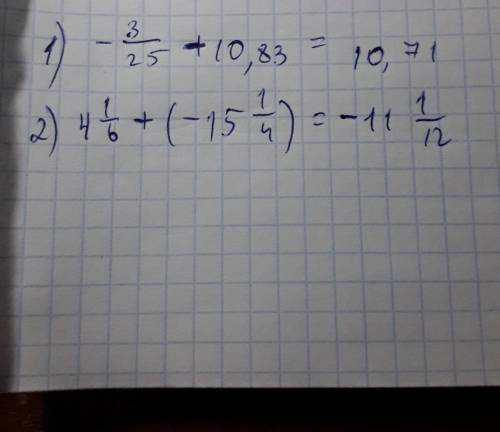 1) - 3/25 + 10,83 = 10,71
2) 4 1/6 + (-15 1/4) = -11 1/12